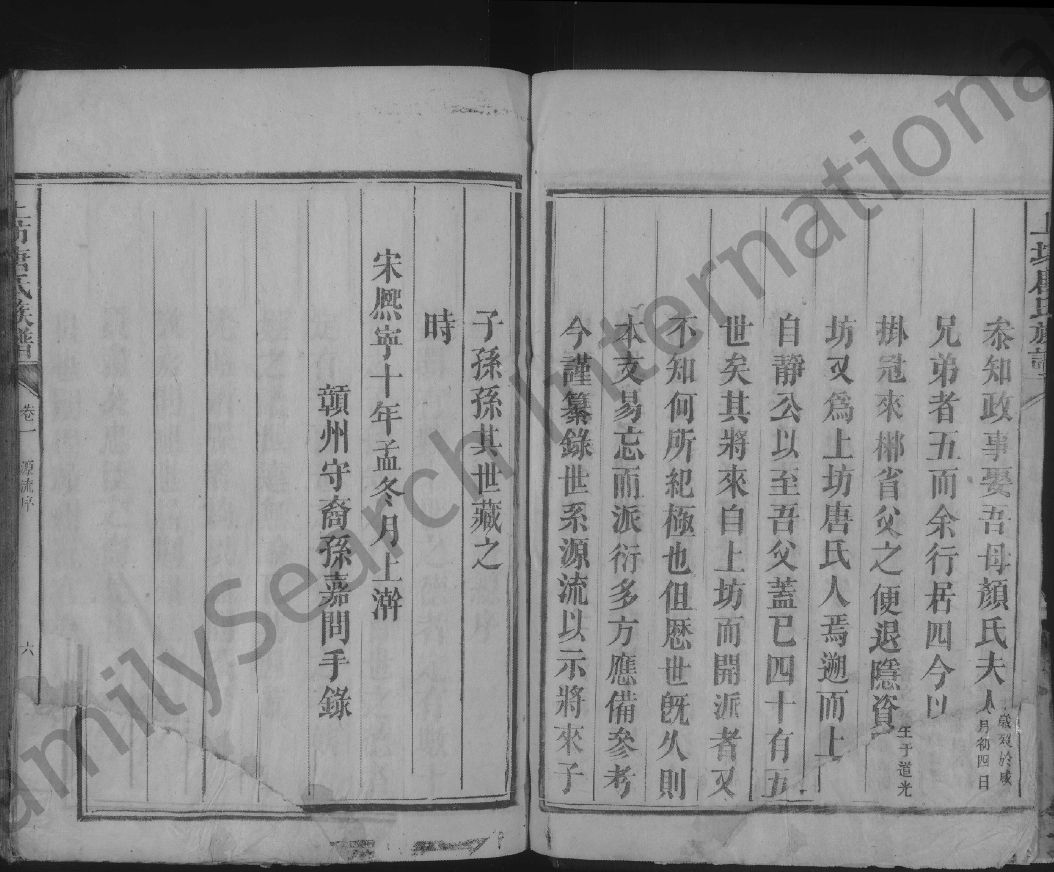 叅知政事娶吾母顏氏夫人
歲歿於咸
月初四日
兄弟者五而余行居四今以
掛冠來郴省父之便退隱資
生于道光
坊又爲上坊唐氏人焉遡而上
自靜公以至吾父蓋已四十有五
世矣其將來自上坊而開派者又
不知何所紀極也但歷世旣久則
本支易忘而派衍多方應備參考
今謹纂錄世系源流以示將來子
子孫孫其世藏之
時
宋熙寧十年孟冬月上澣
贛州守裔孫嘉問手錄
上坊唐氏族譜
卷一
源流序
六
FamilySearch International